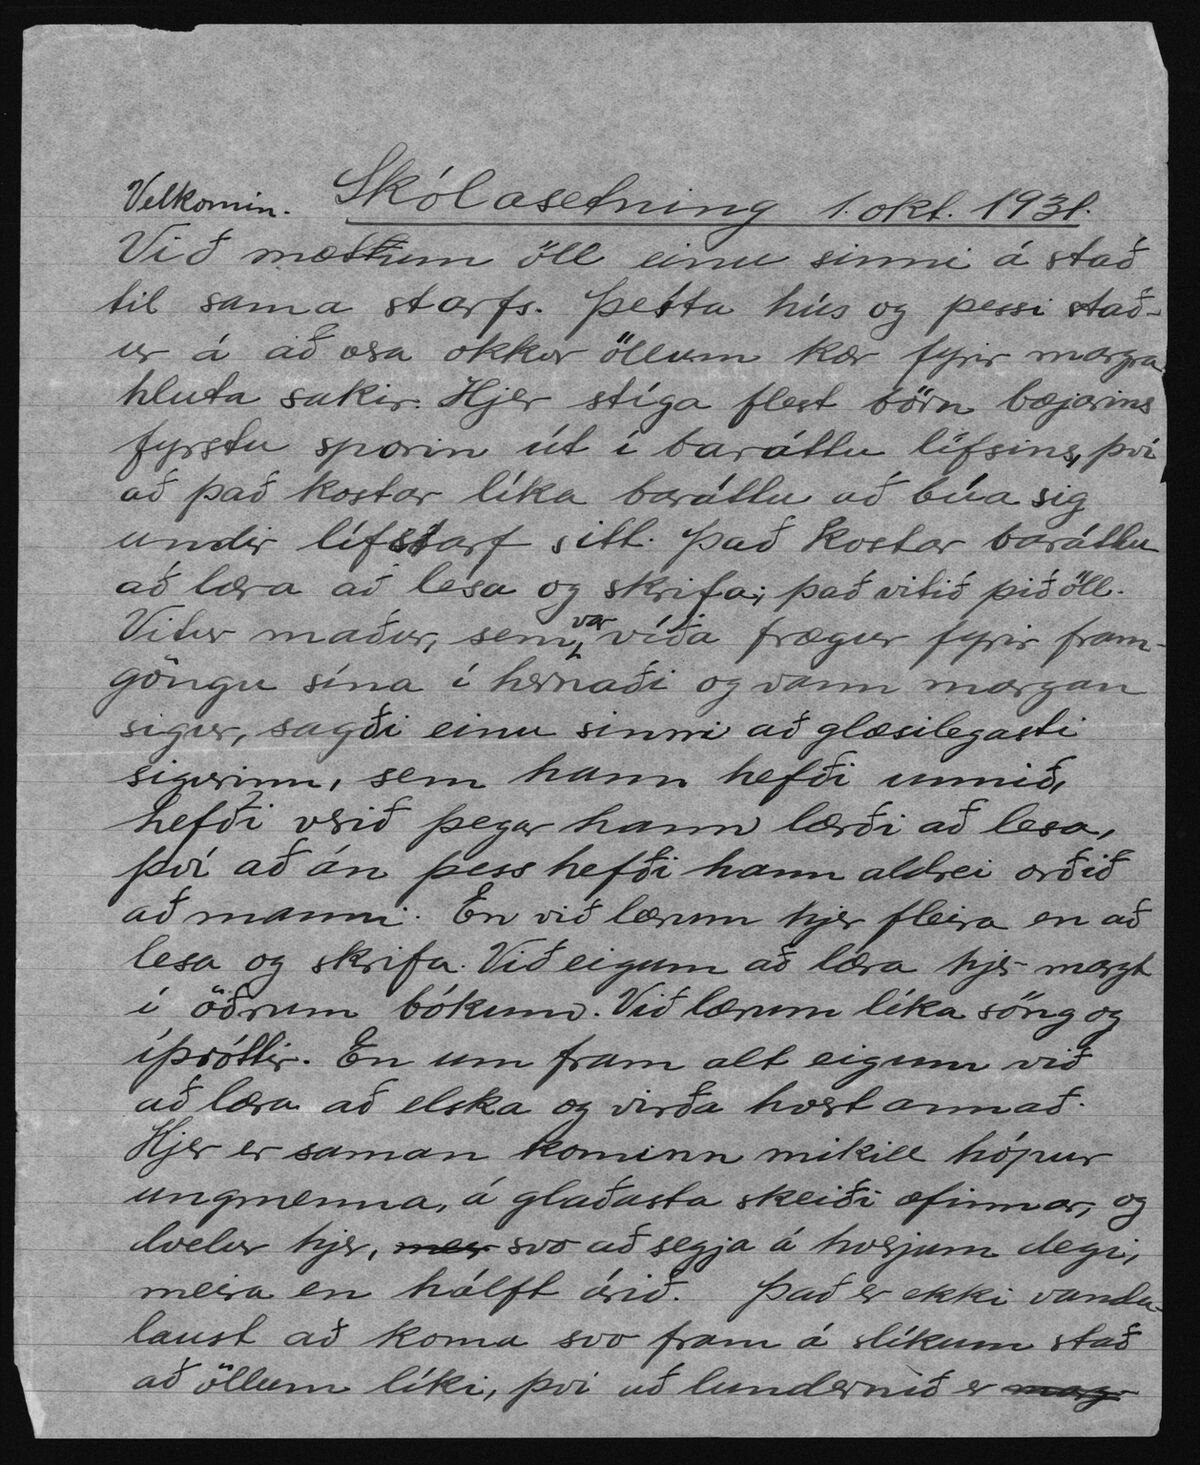 Velkomin. Skólasetning 1. okt. 1931.
Við mættum öll einu sinni á stað
til sama starfs. Þetta hús og þessi stað-
ur á að vera okkur öllum kær fyrir margra
hluta sakir. Hjer stíga flest börn bæjarins
fyrstu sporin út í baráttu lífsins, því
að það kostar líka baráttu að búa sig
undir lífsstarf sitt. Það kostar baráttu
að læra að lesa og skrifa; það vitið þið öll.
Vitur maður, sem var víða frægur fyrir fram-
göngu sína í hernaði og vann margan
sigur, sagði einu sinni að glæsilegasti
sigurinn, sem hann hefði unnið,
hefði verið þegar hann lærði að lesa,
því að án þess hefði hann aldrei orðið
að manni. En við lærum hjer fleira en að
lesa og skrifa. Við eigum að læra hjer margt
í öðrum bókum. Við lærum líka söng og
íþróttir. En um fram alt eigum við
að læra að elska og virða hvert annað.
Hjer er saman kominn mikill hópur
ungmenna, á glaðasta skeiði æfinnar, og
dvelur hjer, svo að segja á hverjum degi,
meira en hálft árið. Það er ekki vanda-
laust að koma svo fram á slíkum stað
að öllum líki, því að lundernið er marg-